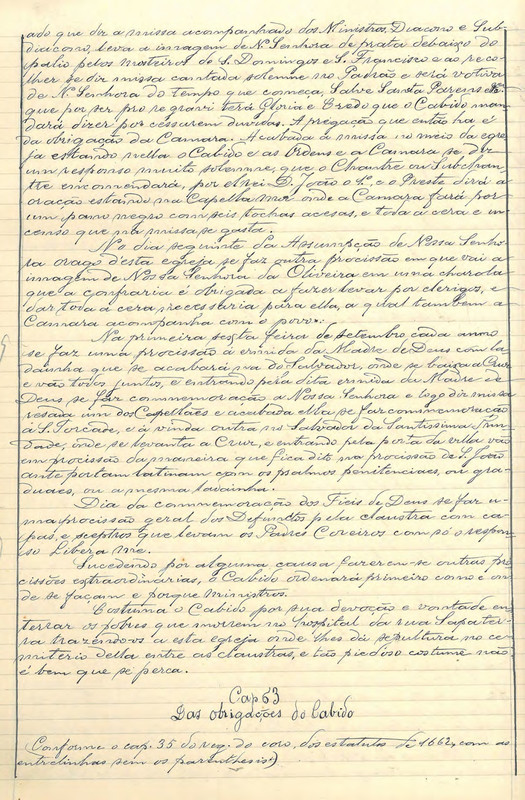 ado que diz a missa acompanhado dos Ministros Diacono e Sub-
diacono, leva a imagem de Nª Senhora de prata debaixo do
palio pelos mosteiros de S. Domingos e S. Francisco e ao reco-
lher se diz missa cantada solemne no Padrão e será votiva
de Nª Senhora do tempo que começa, Salve Sancta Parens &
que por ser pro re gravi terá Gloria e Credo que o Cabido man-
dará dizer por cessarem duvidas. A pregação que então ha é
da obrigação da Camara. Acabada a missa no meio da egre-
ja estando nella o Cabido e as Ordens e a Camara se diz
um responso muito solemne, que o Chantre ou Subchan-
tre encomendará, por el rei D. João o 1.º e o Preste dirá a
oração estando na Capella Mor onde a Camara fará por
um panno negro com seis tochas acesas, e toda a cera e in-
censo que na missa se gasta.
No dia seguinte da Assumpção de Nossa Senho-
ra orago d'esta egreja se faz outra procissão em que vai a
imagem de Nossa Senhora da Oliveira em uma charola
que a confraria é obrigada a fazer levar por clerigos, e
dar toda a cera necessaria para ella, a qual tambem a
Camara acompanha com o povo.
Na primeira sexta feira de setembro cada anno
se faz uma procissão á ermida da Madre de Deus com la-
dainha que se acabará na do Salvador, onde se baixa a Cruz
e vão todos juntos, e entrando pela dita ermida da Madre de
Deus se faz commemoração a Nossa Senhora e logo diz missa
resada um dos Capellães e acabada ella se faz commemoração
a S. Torcade, e á vinda outra no Salvador da Santissima Trin-
dade, onde se levanta a Cruz, e entrando pela porta da villa vão
em procissão da maneira que fica dito na procissão de S. João
ante portam latinam com os psalmos penitenciaes, ou gra-
duaes, ou a mesma ladainha.
Dia da commemoração dos Fieis de Deus se faz u-
ma procissão geral dos Defunctos pela claustra com ca-
pas, e sceptros que levam os Padres Coreiros com só o respon-
so Libera me.
Sucedendo por alguma causa fazerem-se outras pro-
cissões extraordinarias, o Cabido ordenará primeiro como e on-
de se façam e porque ministros.
Costuma o Cabido por sua devoção e vontade en-
terrar os pobres que morrem no hospital da rua Sapatei-
ra trazendo-os a esta egreja onde lhes dá sepultura no ce-
miterio della entre as claustras, e tão piedoso costume não
é bem que se perca.
Cap 63
Das obrigações do Cabido
(Conforme o cap. 35 do reg. do coro, dos estatutos de 1662, com as
entrelinhas sem os parenthesis.)